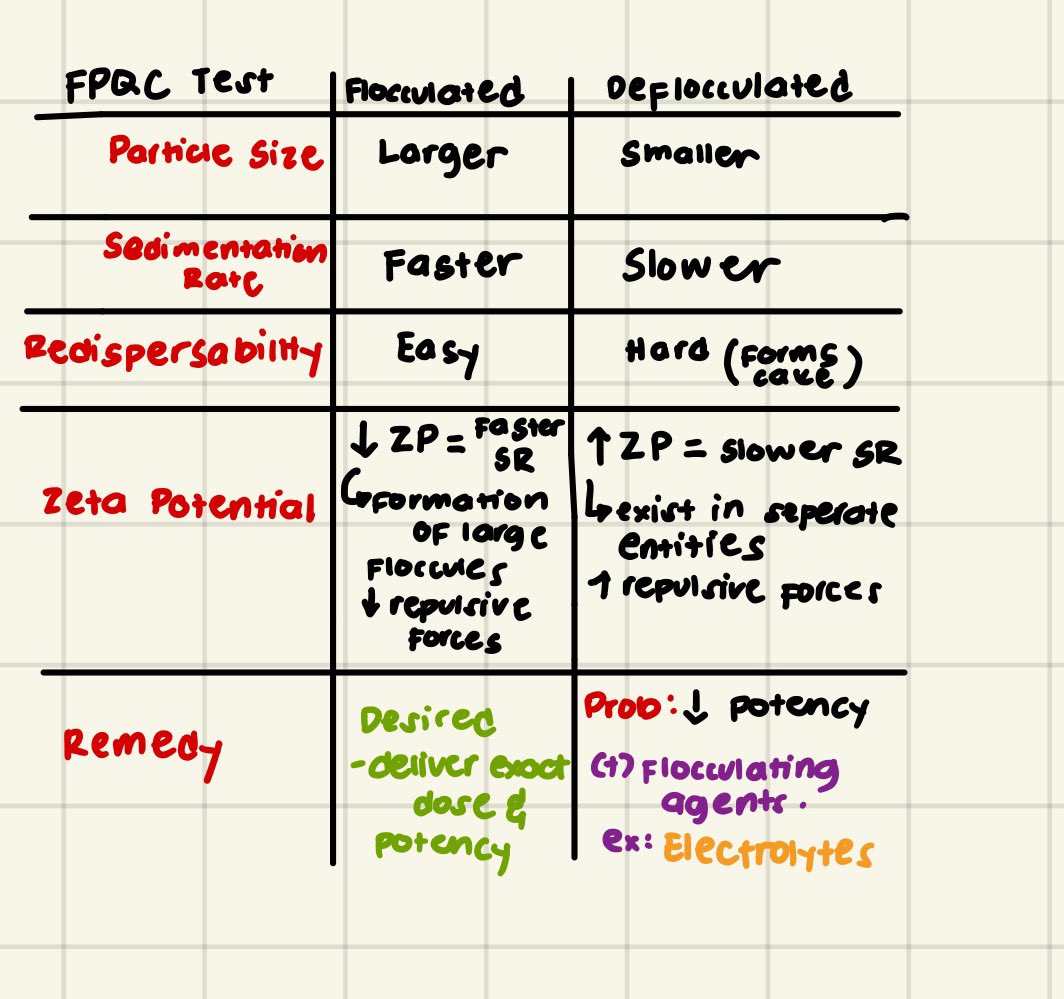 FPQC Test Flocculated Deflocculated
Particle Size Larger Smaller
Sedimentation Rate Faster Slower
Redispersability Easy Hard (forms cake)
Zeta Potential
↓ ZP = Faster SR
↳ formation
of large
floccules
↓ repulsive
forces
↑ ZP = slower SR
↳ exist in seperate
entities
↑ repulsive forces
Remedy
Desired
- deliver exact
dose &
potency
Prob: ↓ potency
(+) Flocculating
agents.
ex: Electrolytes